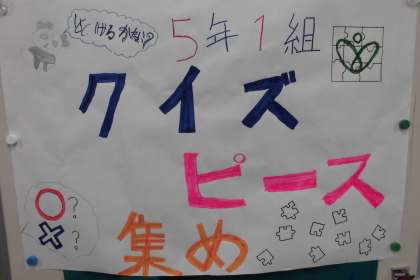 とけるかな!?
5年1組
クイズ
ピース
集め
○?
×?